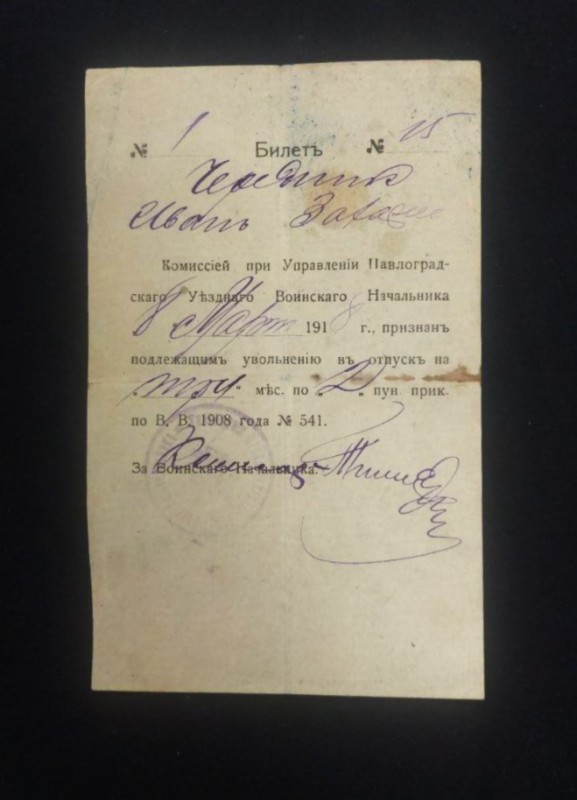 № 1 Билетъ № 15
Чередникъ
Иванъ Захаръ
Комиссіей при Управленіи Павлоград-
скаго Уѣзднаго Воинскаго Начальника
8 Марта 1918 г., признанъ
подлежащимъ увольненію въ отпускъ на
"три" мѣс. по "Д" пун. прик.
по В. В. 1908 года № 541.
За Воинскаго Начальника.